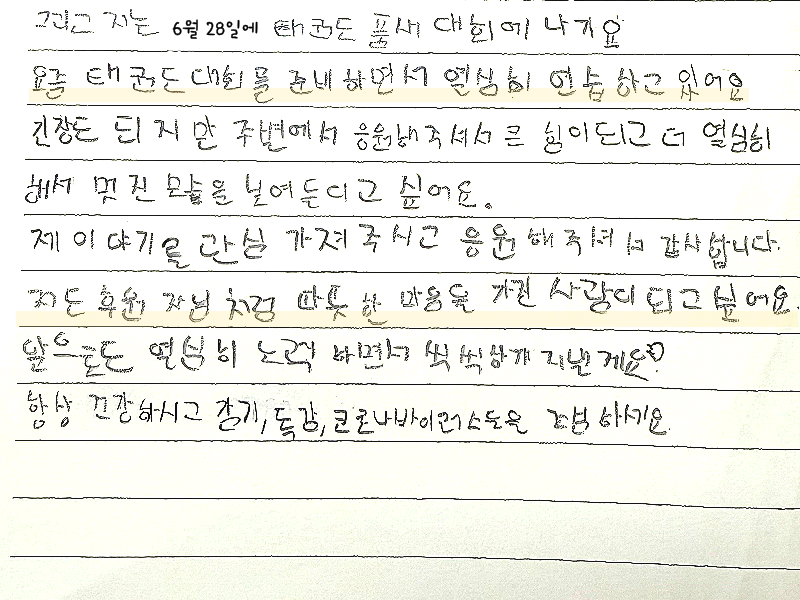 그리고 저는 6월 28일에 태권도 품새 대회에 나가요
요즘 태권도 대회를 준비하면서 열심히 연습하고 있어요
긴장도 되지만 주변에서 응원해주셔서 큰 힘이되고 더 열심히
해서 멋진 모습을 보여드리고 싶어요.
제 이야기를 관심 가져주시고 응원해주셔서 감사합니다.
저도 후원자님처럼 따뜻한 마음을 가진 사람이 되고 싶어요.
앞으로도 열심히 노력하면서 씩씩하게 지낼게요♡
항상 건강하시고 감기, 독감, 코로나바이러스들을 조심하세요.